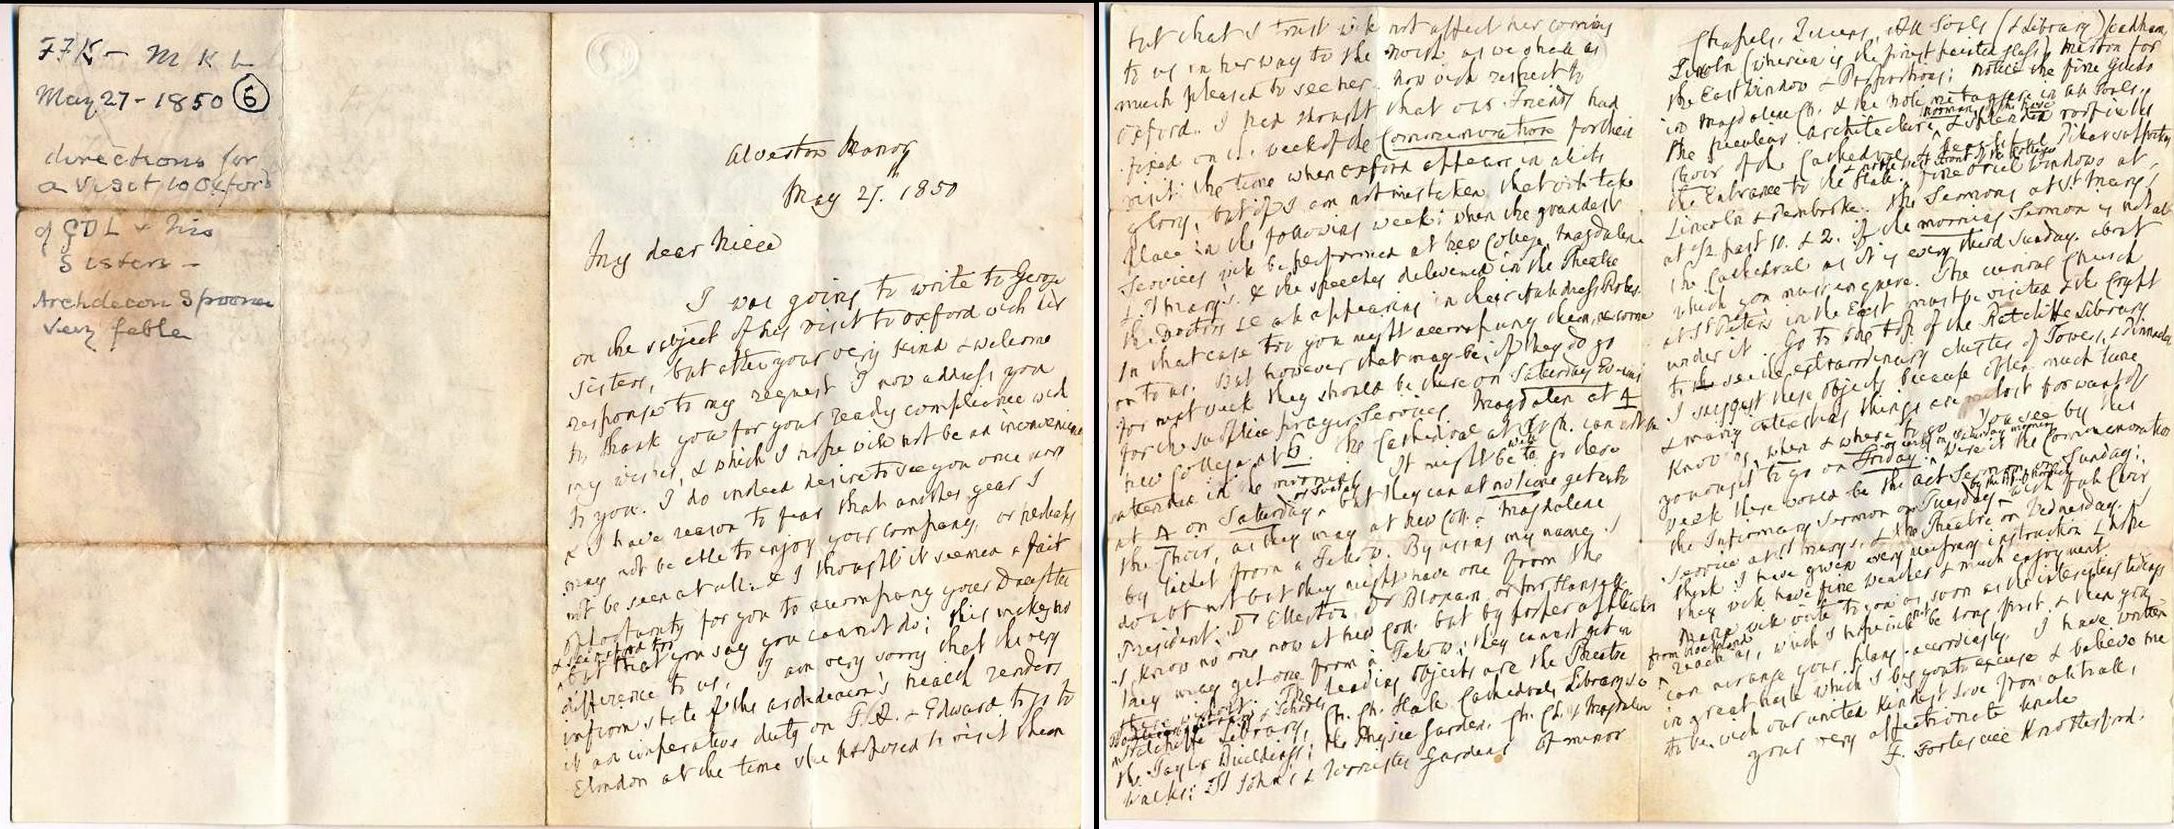 FFK - M K L
May 27 - 1850 (6)
directions for
a visit to Oxford
of GDL & his
Sisters -
Archdeacon Spooner
very feble
Alveston Manor
May 27. 1850
My dear Niece
I was going to write to George
on the subject of his visit to Oxford with his
sisters, but after your very kind & welcome
response to my request I now address you
to thank you for your ready compliance with
my wishes, & which I hope will not be an inconvenience
to you. I do indeed desire to see you once more
& I have reason to fear that another year I
may not be able to enjoy your company, or perhaps
not be seen at all: & I thought it seemed a fair
opportunity for you to accompany your Daughter
but that you say you cannot do; this makes no
difference to us, I am very sorry that the very
infirm state of the archdeacon's health renders
it an imperative duty on F.A. & Edward to go to
Elmdon at the time she proposed to visit them
but that I trust will not affect her coming
to us in her way to the North as we shall be
much pleased to see her. Now with respect to
Oxford. I had thought that our Friends had
fixed on the week of the Commemoration for their
visit: the time when Oxford appears in all its
glory, but if I am not mistaken that will take
place in the following week; when the grandest
Services will be performed at New College, Magdalen
St Mary's. & the speeches delivered in the Theatre
the Doctors &c all appearing in their full dress Robes.
In that case too you might accompany them, & come
on to us. But however that may be, if they do go
for next week they should be there on Saturday Evening
for the surplice prayer Services Magdalen at 4
New College at 6. The Cathedral at Ch. Ch. can
attended in the morning It might be well to go there
at 4 on Saturday, but they can at no time get into
the Choir, as they may at New Coll. & Magdalene
by ticket from a Fellow. By using my name I
doubt not but they might have one from the
President, Dr Ellerton, Dr Bloxam, or Mr Hansell
I know no one now at New Coll. but by proper application
they may get one from a Fellow; they cannot get in
The leading objects are the Theatre
Schools
Ratcliffe Library, Ch. Ch. Hall, Cathedral, Library &c
the Taylor Buildings; the Physic Garden, Ch. Ch. & Magdalen
Walks; St John's & Worcester Gardens Of minor
Chapels, Queens, All Souls (& Library) Wadham,
Lincoln (wherein is the finest painted glass) Merton for
the East window & Proportions; notice the fine Guido
in Magdalen Ch. & the Noli me tangere in All Souls,
the peculiar architecture & splendid roof in the
Choir of the Cathedral, & beautiful Pillar supporting
the Entrance to the Hall. Fine Oriel windows at
Lincoln & Pembroke. The Sermons at St Mary's
at 1/2 past 10. & 2. if the morning Sermon is not at
the Cathedral as it is every third Sunday. about
which you must enquire. The curious Church
at St Peter's in the East must be visited & the Crypt
under it Go to the top of the Ratcliffe Library
to see the extraordinary cluster of Towers, & Pinnacles
I suggest these objects because often much time
& many interesting things are lost for want of
knowing when & where to go You see by this
you ought to go on Friday. or early on Saturday morning Were it the Commemoration
week there would be the Act Sermon on Sunday;
the Infirmary Sermon on Tuesday - with full Choir
service at St Mary's, & the Theatre on Wednesday. I
think I have given every needful instruction & hope
they will have fine weather & much enjoyment
Maria will write to you as soon as the interesting tidings
reach us, which I hope will not be long first, & then you
can arrange your plans accordingly. I have written
in great haste which I beg you to excuse & believe me
to be, with our united kindest love from all to all,
your very affectionate Uncle
F. Fortescue Knottesford.